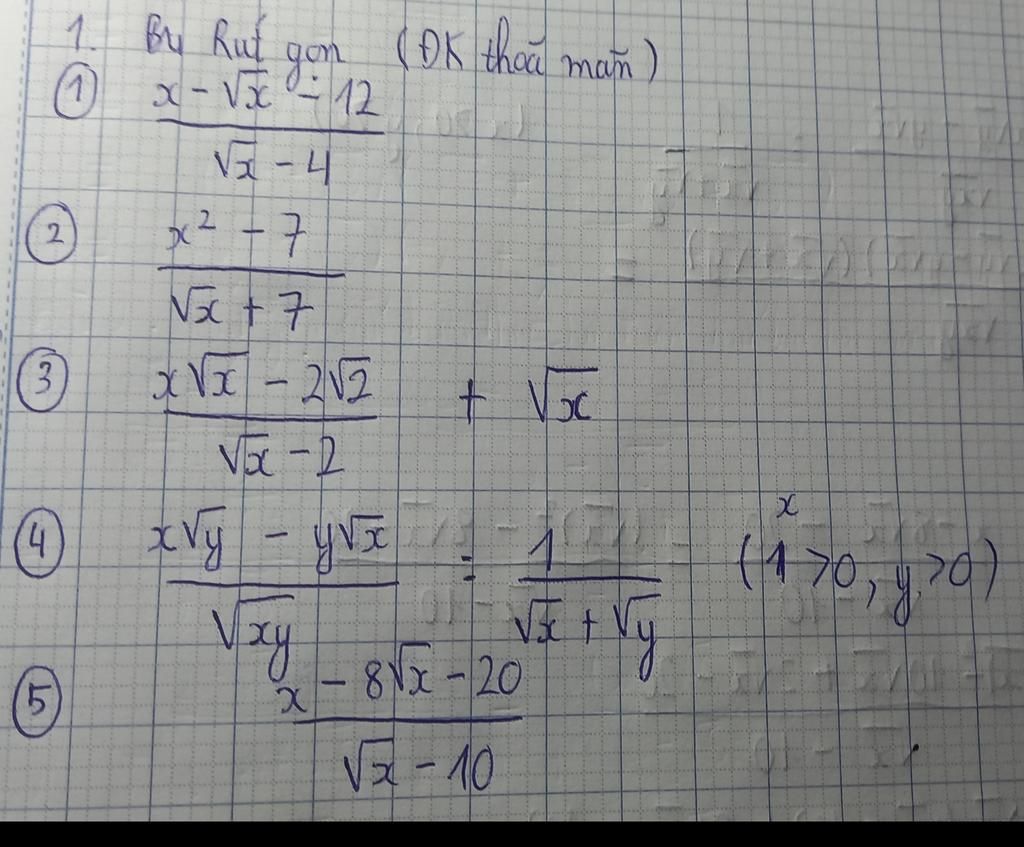 1. By Rut gọn (ĐK thoã mãn)
① (x - √x - 12) / (√x - 4)
② (x² - 7) / (√x + 7)
③ (x√x - 2√2) / (√x - 2) + √x
④ (x√y - y√x) / √xy : 1 / (√x + √y) (x > 0, y > 0)
⑤ (x - 8√x - 20) / (√x - 10)